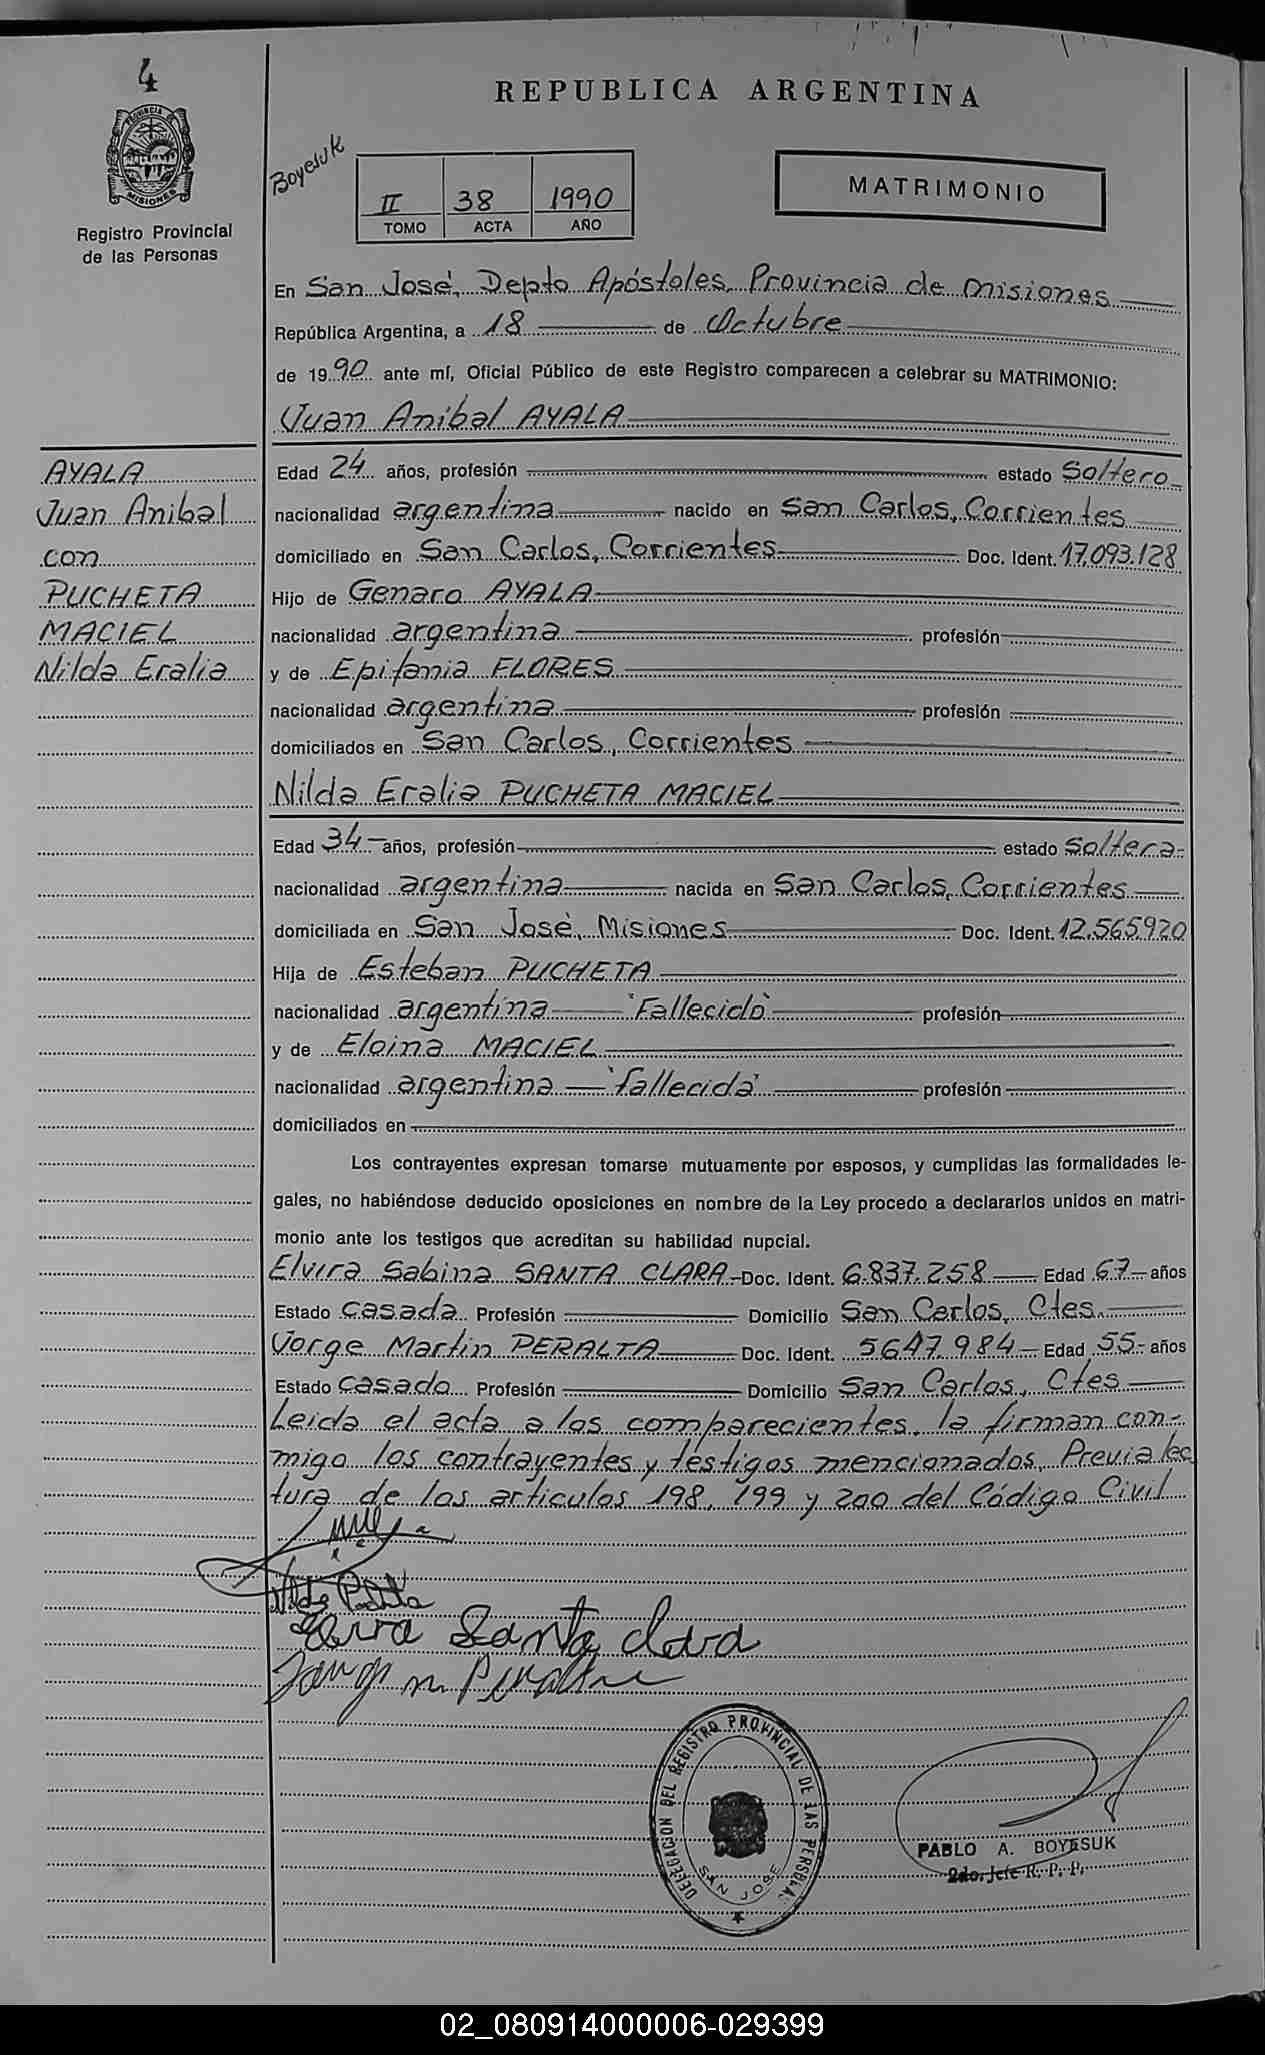 4
REPUBLICA ARGENTINA
PROVINCIA DE MISIONES
Registro Provincial
de las Personas
Boyesuk
II 38 1990
TOMO ACTA AÑO
MATRIMONIO
En San José, Depto Apóstoles, Provincia de Misiones
República Argentina, a 18 de Octubre
de 1990 ante mí, Oficial Público de este Registro comparecen a celebrar su MATRIMONIO:
Juan Anibal AYALA
AYALA
Juan Anibal
con
PUCHETA
MACIEL
Nilda Eralia
Edad 24 años, profesión estado Soltero
nacionalidad argentina nacido en San Carlos, Corrientes
domiciliado en San Carlos, Corrientes Doc. Ident. 17.093.128
Hijo de Genaro AYALA
nacionalidad argentina profesión
y de Epifania FLORES
nacionalidad argentina profesión
domiciliados en San Carlos, Corrientes
Nilda Eralia PUCHETA MACIEL
Edad 34 años, profesión estado Soltera
nacionalidad argentina nacida en San Carlos, Corrientes
domiciliada en San José, Misiones Doc. Ident. 12.565920
Hija de Esteban PUCHETA
nacionalidad argentina "Fallecido" profesión
y de Eloina MACIEL
nacionalidad argentina "fallecida" profesión
domiciliados en
Los contrayentes expresan tomarse mutuamente por esposos, y cumplidas las formalidades le-
gales, no habiéndose deducido oposiciones en nombre de la Ley procedo a declararlos unidos en matri-
monio ante los testigos que acreditan su habilidad nupcial.
Elvira Sabina SANTA CLARA Doc. Ident. 6.837.258 Edad 67 años
Estado casada Profesión Domicilio San Carlos, Ctes.
Jorge Martin PERALTA Doc. Ident. 5647.984 Edad 55 años
Estado casado Profesión Domicilio San Carlos, Ctes
Leida el acta a los comparecientes, la firman con-
migo los contrayentes y testigos mencionados. Previa lec
tura de los articulos 198, 199 y 200 del Código Civil
Santa Clara
Peralta
DELEGACION DEL REGISTRO PROVINCIAL DE LAS PERSONAS
SAN JOSE
PABLO A. BOYESUK
2do. Jefe R. P. P.
02_080914000006-029399